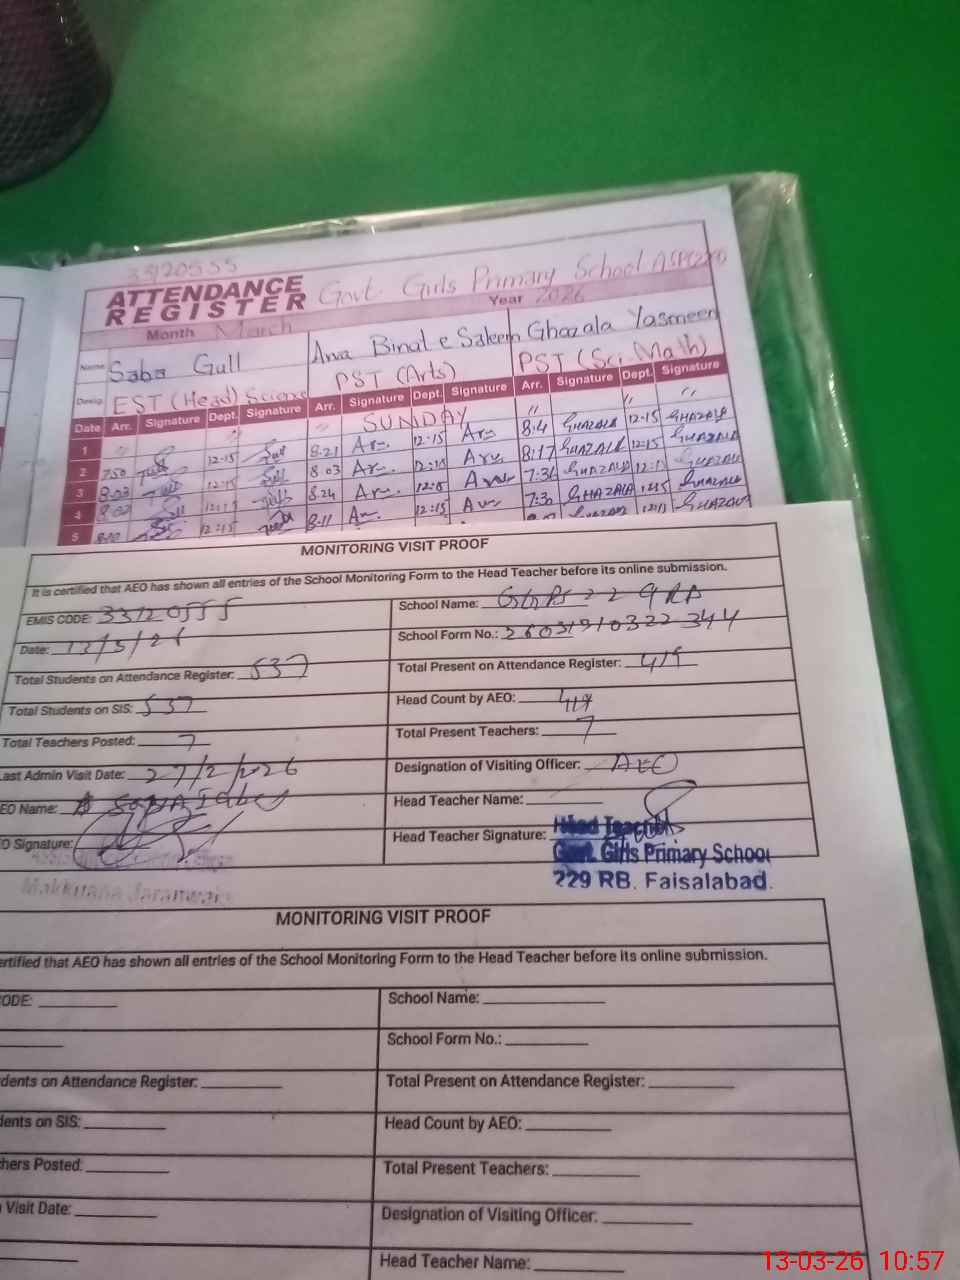 33120555
ATTENDANCE REGISTER
Govt. Girls Primary School
Month March
Year 2026
Name Saba Gull
Ana Binat e Saleem
Ghazala Yasmeen
Desig. EST (Head) Science
PST (Arts)
PST (Sci. Math)
Date Arr. Signature Dept. Signature Arr. Signature Dept. Signature Arr. Signature Dept. Signature
1 SUNDAY
2 7:50 12:15 8:21 12:15 8:4 GHAZALA 12:15 GHAZALA
3 8:03 12:15 8:03 12:15 8:17 GHAZALA 12:15 GHAZALA
4 8:24 7:36 GHAZALA GHAZALA
5 12:15 8:11 12:15 7:30 GHAZALA GHAZALA
MONITORING VISIT PROOF
It is certified that AEO has shown all entries of the School Monitoring Form to the Head Teacher before its online submission.
EMIS CODE: 33120555
School Name:
Date:
School Form No.:
Total Students on Attendance Register: 537
Total Present on Attendance Register: 419
Total Students on SIS: 537
Head Count by AEO: 419
Total Teachers Posted: 7
Total Present Teachers: 7
Last Admin Visit Date: 27/2/2026
Designation of Visiting Officer: AEO
EO Name:
Head Teacher Name:
O Signature:
Head Teacher Signature:
Head Teacher
Govt. Girls Primary School
229 RB. Faisalabad.
Makkuana Jaranwala
MONITORING VISIT PROOF
ertified that AEO has shown all entries of the School Monitoring Form to the Head Teacher before its online submission.
CODE:
School Name:
School Form No.:
dents on Attendance Register:
Total Present on Attendance Register:
dents on SIS:
Head Count by AEO:
hers Posted:
Total Present Teachers:
Visit Date:
Designation of Visiting Officer:
Head Teacher Name:
13-03-26 10:57